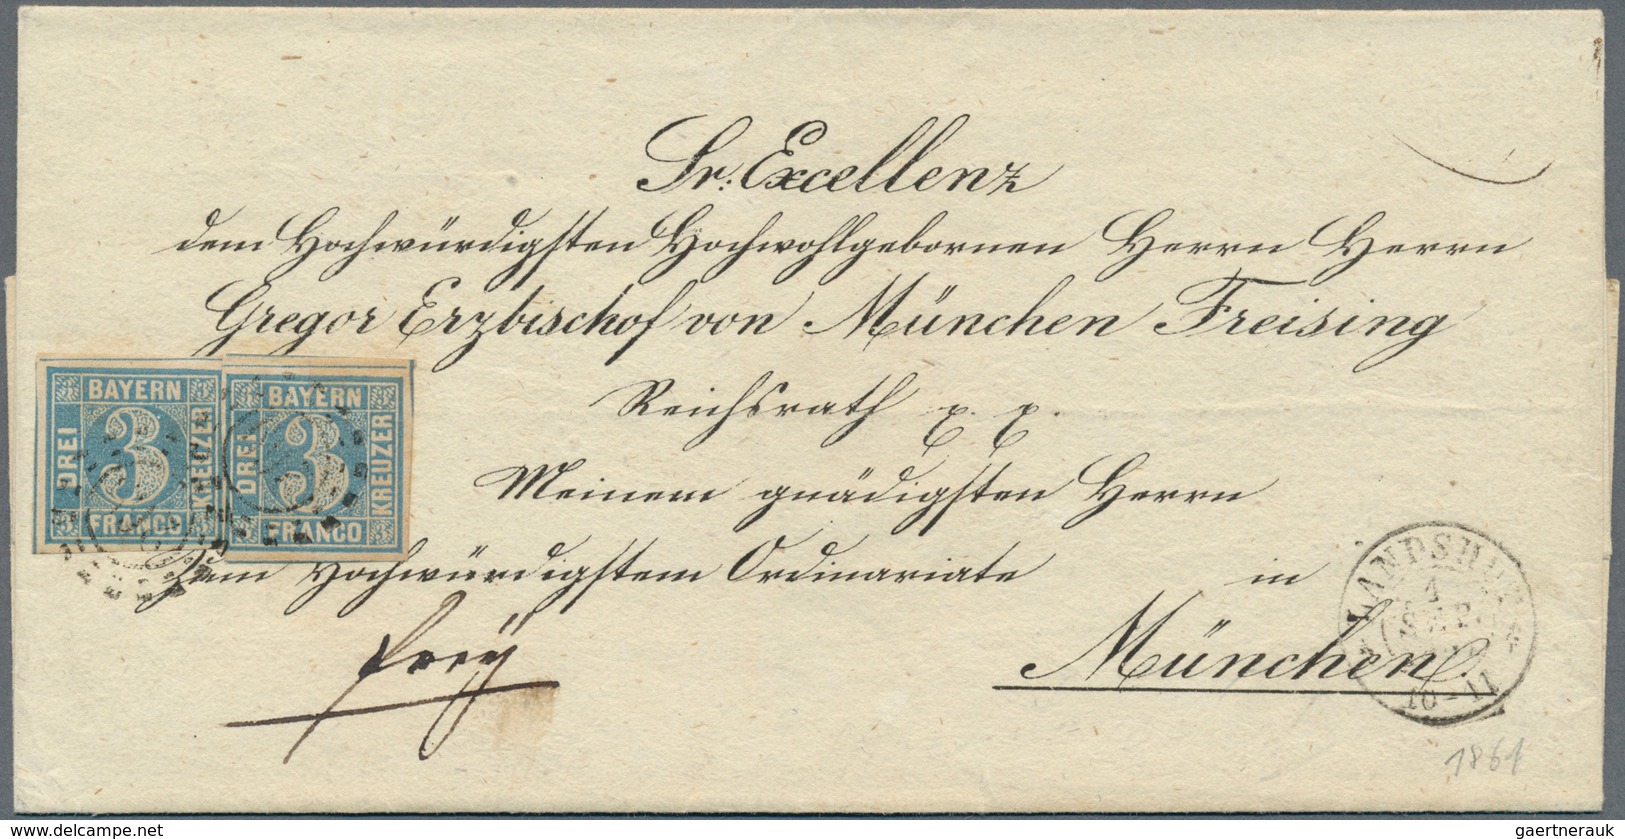 Sr. Excellenz
dem Hochwürdigsten Hochwohlgebornen Herrn Herrn
Gregor Erzbischof von München Freising
Reichsrath p. p.
Meinem gnädigsten Herrn
zum Hochwürdigstem Ordinariate in
München
frey
BAYERN
DREI
3
KREUZER
FRANCO
BAYERN
DREI
3
KREUZER
FRANCO
LANDSHUT
1
SEP
10-11
1861
www.delcampe.net
gaertnerauk